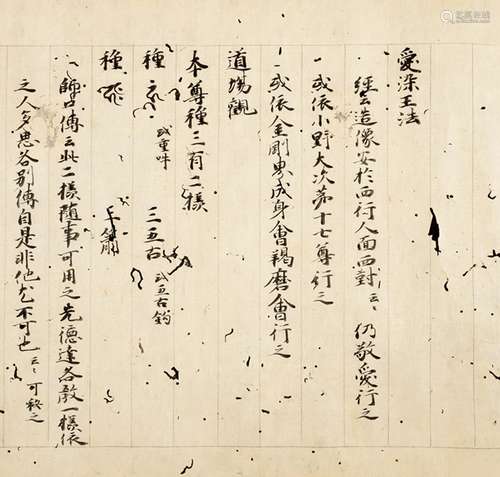 愛染王法
經云造像安於西行人面西對云々仍敬愛行之
一或依小野大次第十七尊行之
一或依金剛界成身會羯磨會行之
道場觀
本尊種三有二樣
種 或重吽 三五古 或五古鈎
種 三
師口傳云此二樣隨事可用之先德達各教一樣依
之人多忠各別傳自是非他尤不可也云々可秘之